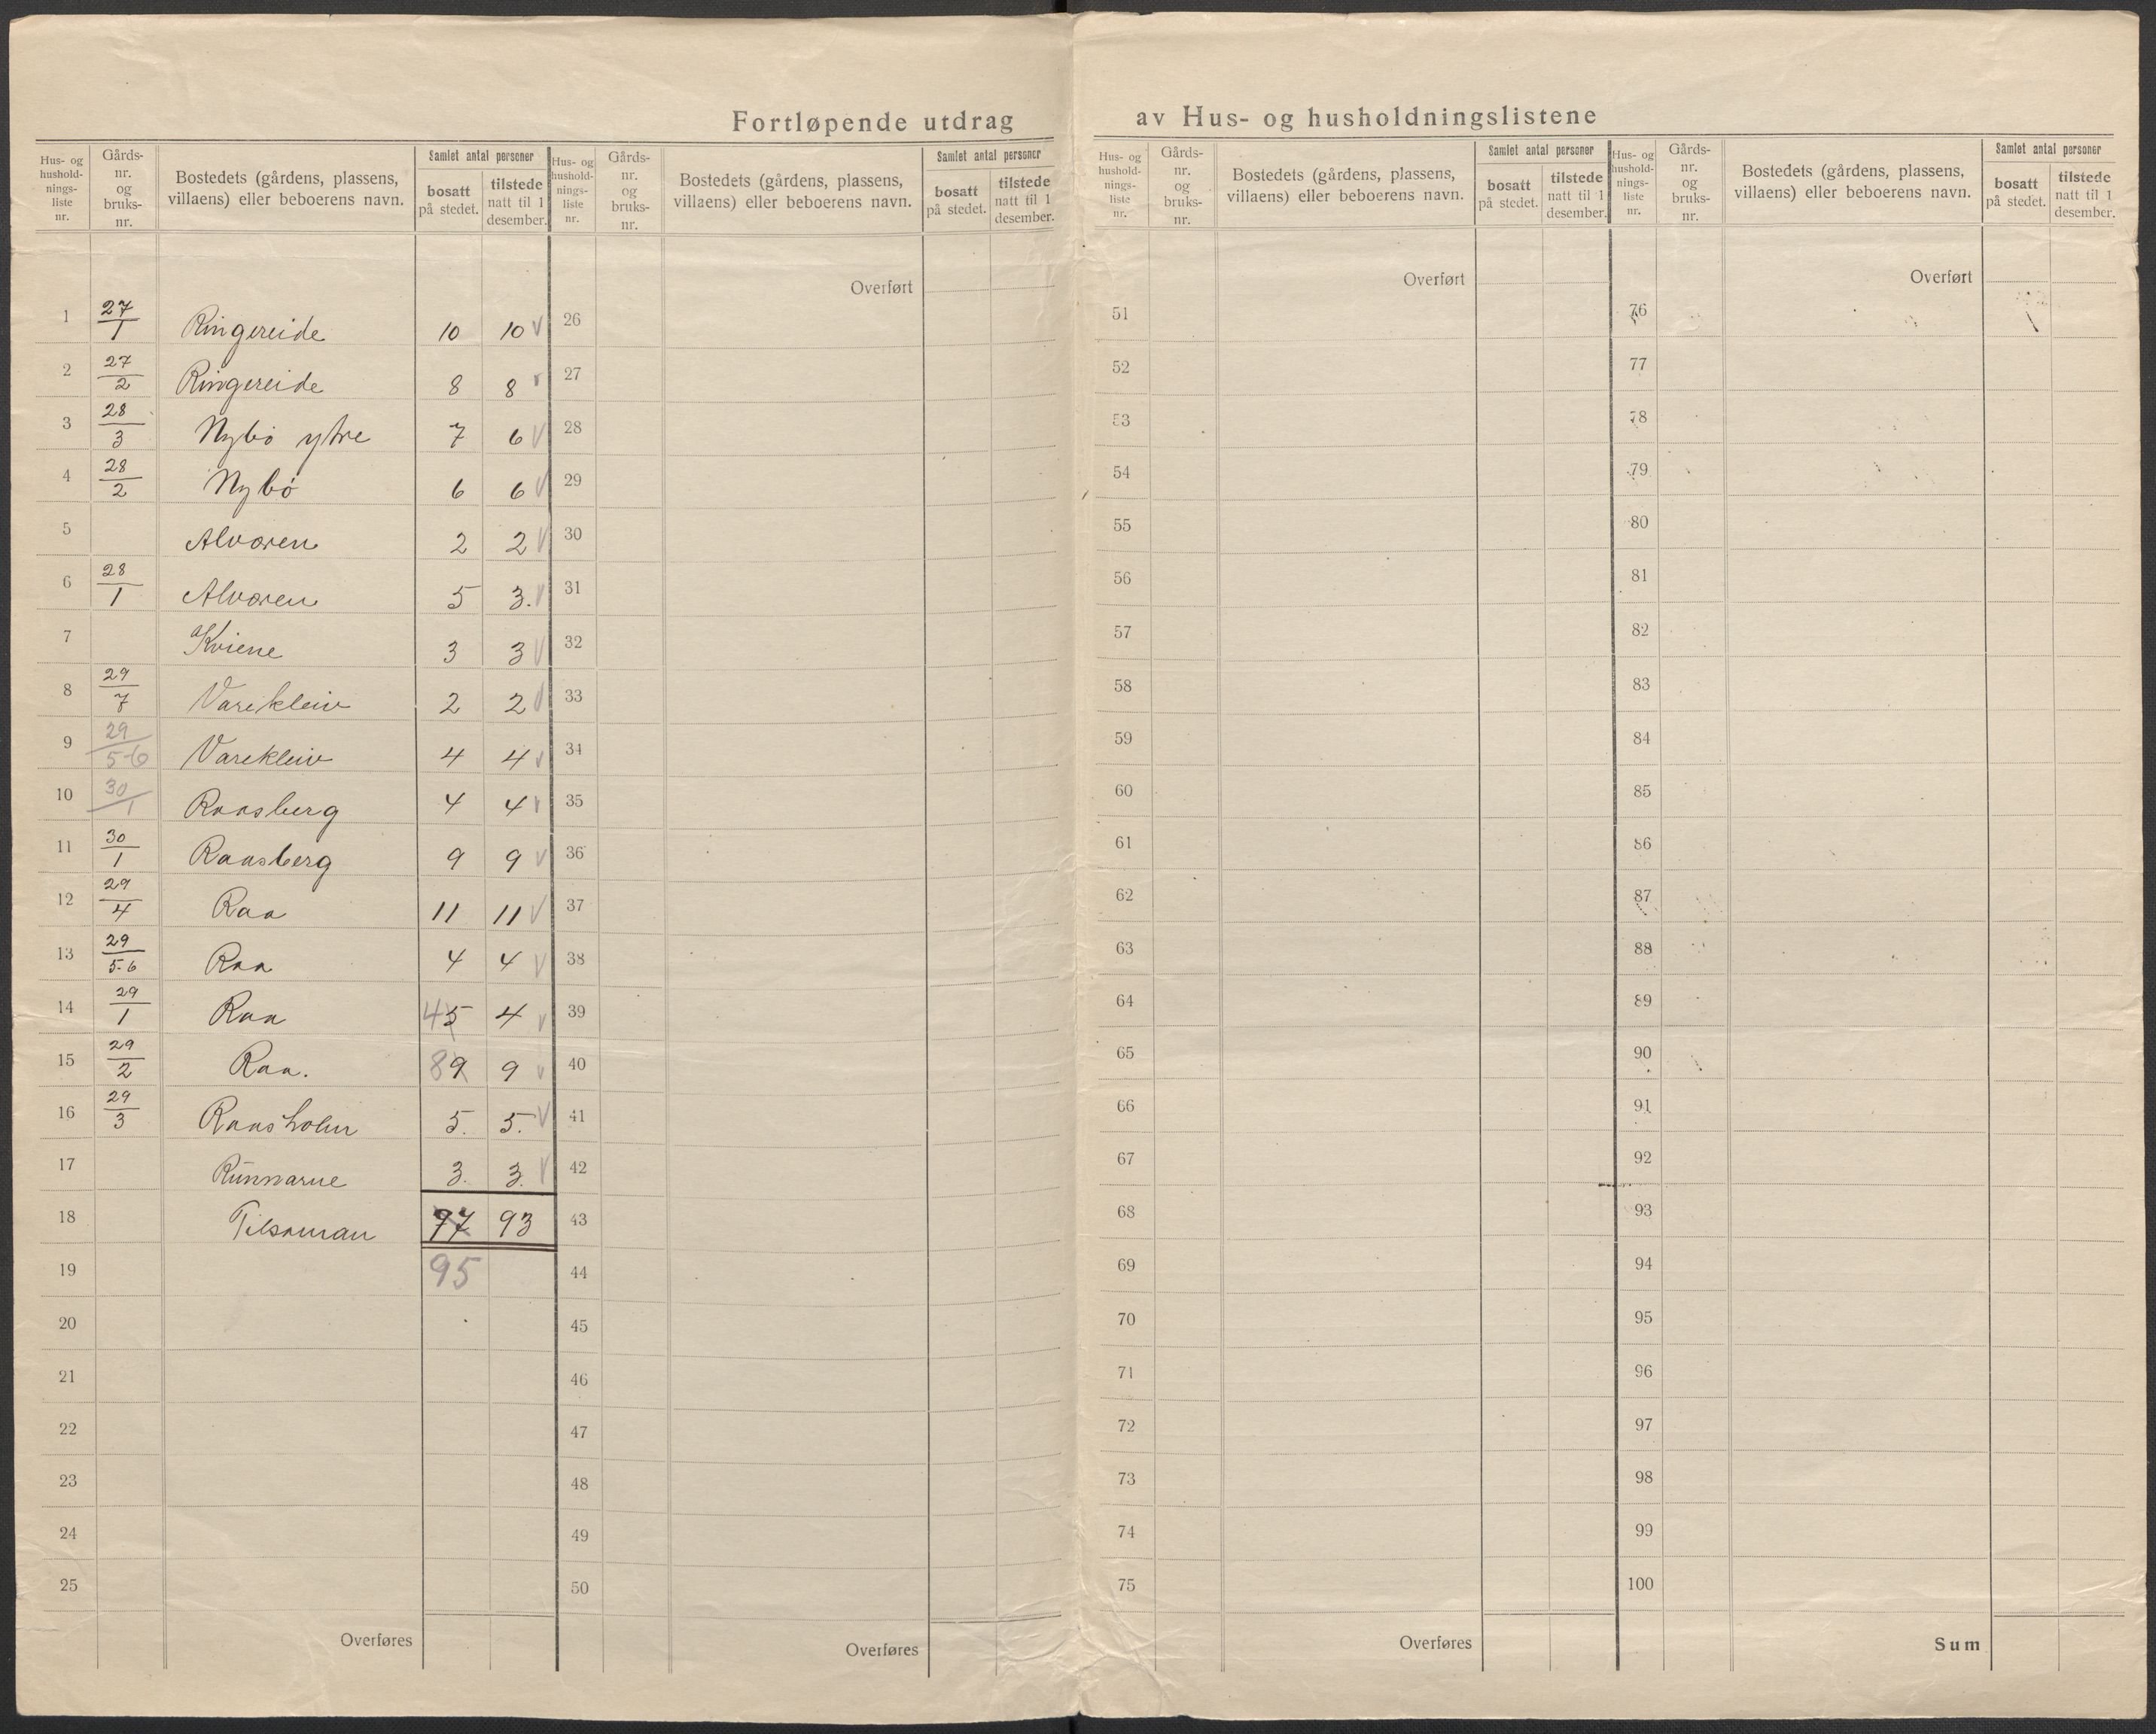 Fortløpende utdrag av Hus- og husholdningslistene
Hus- og hushold-nings-liste nr. | Gårds-nr. og bruks-nr. | Bostedets (gårdens, plassens, villaens) eller beboerens navn. | Samlet antal personer | bosatt på stedet. | tilstede natt til 1 desember.
1 27/1 Ringereide 10 10 V
2 27/2 Ringereide 8 8 v
3 28/3 Nybö ytre 7 6 V
4 28/2 Nybö 6 6 V
5 Alvoren 2 2 V
6 28/1 Alvoren 5 3. V
7 Kviene 3 3 V
8 29/7 Varekleiv 2 2 V
9 29/5-6 Varekleiv 4 4 v
10 30/1 Raasberg 4 4 v
11 30/1 Raasberg 9 9 V
12 29/4 Raa 11 11 V
13 29/5-6 Raa 4 4 V
14 29/1 Raa 4 5 4 v
15 29/2 Raa. 8 9 9 v
16 29/3 Raasholm 5. 5. V
17 Runnarne 3. 3. V
18 Tilsaman 97 93
19 95
20
21
22
23
24
25
Overføres
Hus- og hushold-nings-liste nr. | Gårds-nr. og bruks-nr. | Bostedets (gårdens, plassens, villaens) eller beboerens navn. | Samlet antal personer | bosatt på stedet. | tilstede natt til 1 desember.
Overført
26
27
28
29
30
31
32
33
34
35
36
37
38
39
40
41
42
43
44
45
46
47
48
49
50
Overføres
Hus- og hushold-nings-liste nr. | Gårds-nr. og bruks-nr. | Bostedets (gårdens, plassens, villaens) eller beboerens navn. | Samlet antal personer | bosatt på stedet. | tilstede natt til 1 desember.
Overført
51
52
53
54
55
56
57
58
59
60
61
62
63
64
65
66
67
68
69
70
71
72
73
74
75
Overføres
Hus- og hushold-nings-liste nr. | Gårds-nr. og bruks-nr. | Bostedets (gårdens, plassens, villaens) eller beboerens navn. | Samlet antal personer | bosatt på stedet. | tilstede natt til 1 desember.
Overført
76
77
78
79
80
81
82
83
84
85
86
87
88
89
90
91
92
93
94
95
96
97
98
99
100
Sum